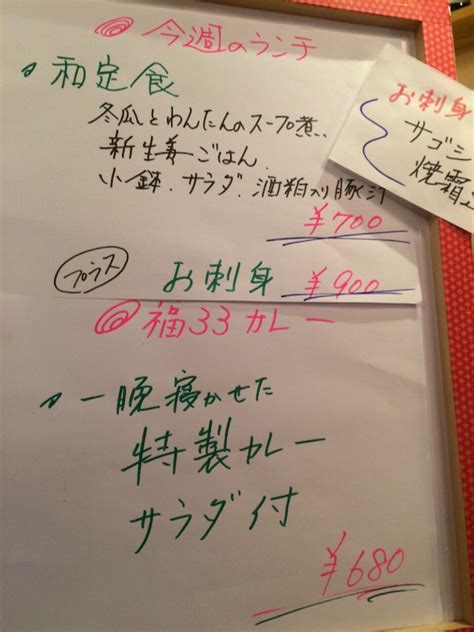 ◎今週のランチ
和定食
冬瓜とわんたんのスープ煮、
新生姜ごはん、
小鉢、サラダ、酒粕入り豚汁
¥700
プラス お刺身 ¥900
◎福33カレー
一晩寝かせた
特製カレー
サラダ付
¥680
お刺身
サゴシ
焼霜